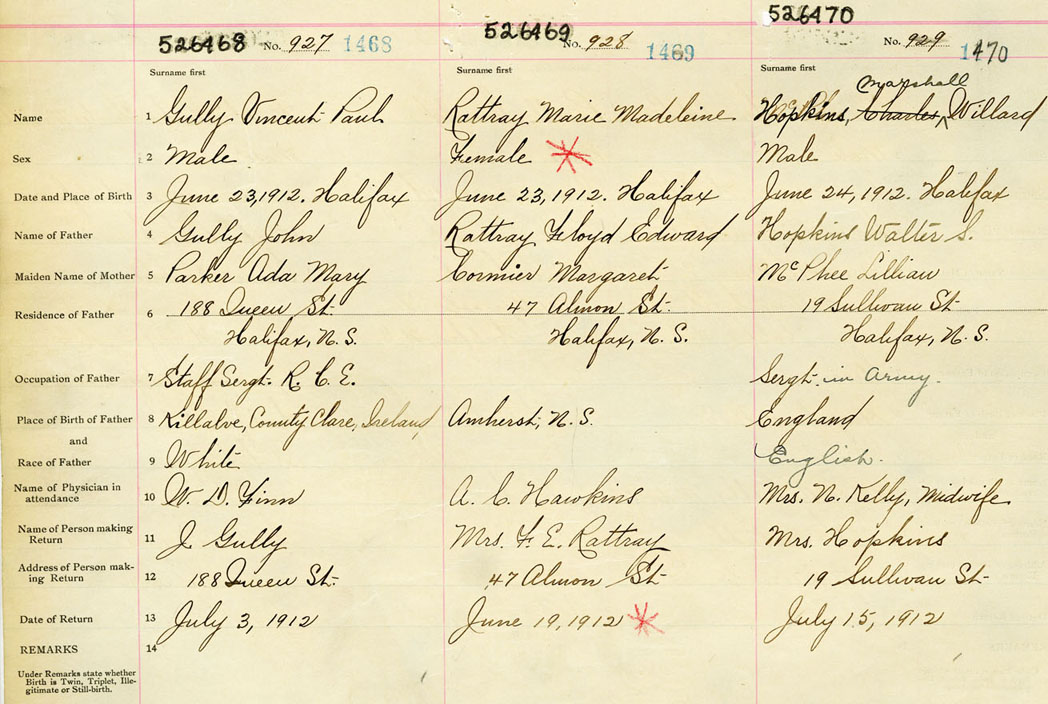 526468 No. 927 1468
526469 No. 928 1469
526470 No. 929 1470
Surname first Surname first Surname first
Marshall
Name 1 Gully Vincent Paul Rattray Marie Madeleine Hopkins, Charles, Willard
Sex 2 Male Female Male
Date and Place of Birth 3 June 23, 1912. Halifax June 23, 1912. Halifax June 24, 1912. Halifax
Name of Father 4 Gully John Rattray Floyd Edward Hopkins Walter S.
Maiden Name of Mother 5 Parker Ada Mary Cormier Margaret McPhee Lillian
Residence of Father 6 188 Queen St. 47 Almon St. 19 Sullivan St
Halifax, N.S. Halifax, N.S. Halifax, N.S.
Occupation of Father 7 Staff Sergt. R.C.E. Sergt. in Army.
Place of Birth of Father 8 Killalve, County Clare, Ireland Amherst, N.S. England
and
Race of Father 9 White English.
Name of Physician in
attendance 10 W. D. Finn A. C. Hawkins Mrs. N. Kelly, Midwife
Name of Person making
Return 11 J. Gully Mrs. F. E. Rattray Mrs. Hopkins
Address of Person mak-
ing Return 12 188 Queen St. 47 Almon St. 19 Sullivan St.
Date of Return 13 July 3, 1912 June 19, 1912 July 15, 1912
REMARKS 14
Under Remarks state whether
Birth is Twin, Triplet, Ille-
gitimate or Still-birth.